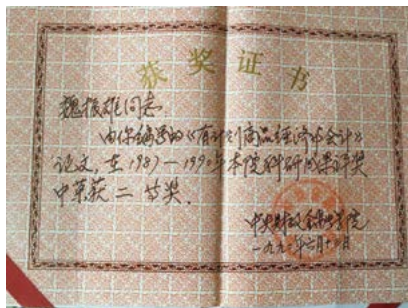 获奖证书
魏振雄同志
由你编写的《有计划商品经济与会计》
论文，在1987—1990年本院科研成果评奖
中荣获二等奖．
中央财政金融学院
一九九一年六月十日